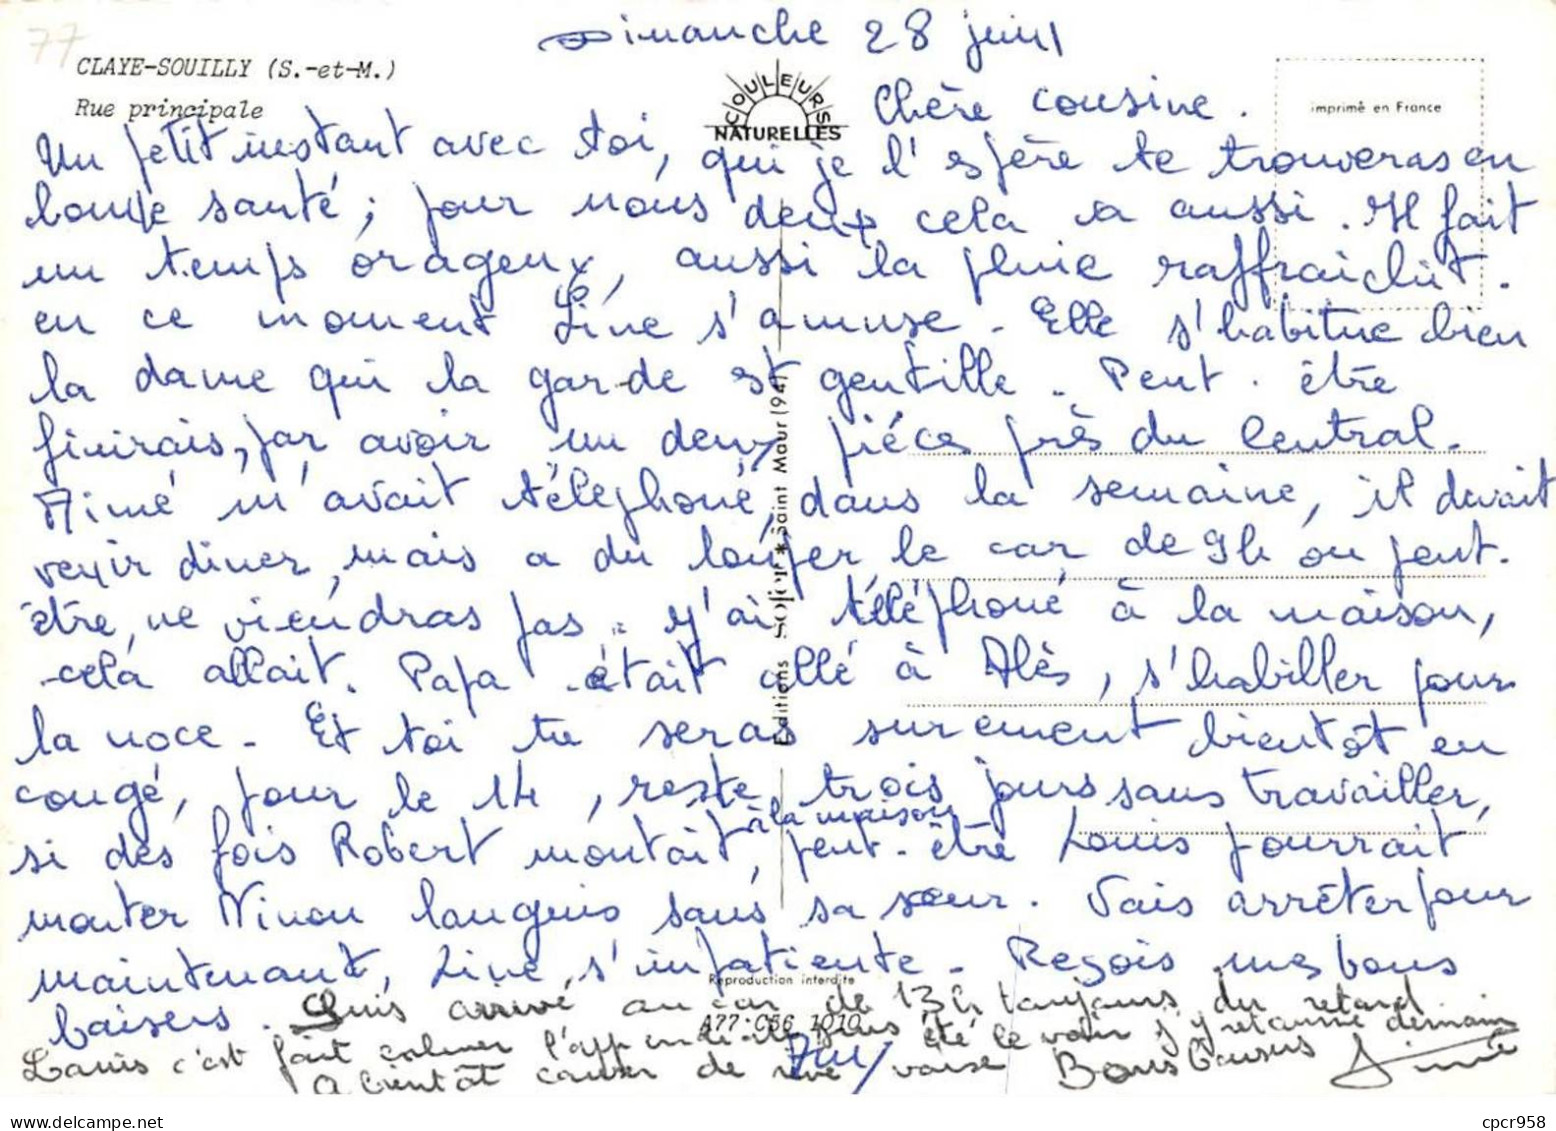 77
Dimanche 28 juin
CLAYE-SOUILLY (S.-et-M.)
Rue principale
COULEURS
NATURELLES
imprimé en France
Chère cousine.
Un petit instant avec toi, qui je l'espère te trouveras en
bonne santé ; pour nous deux cela va aussi. Il fait
un temps orageux, aussi la pluie raffraichit.
en ce moment Line s'amuse. Elle s'habitue bien
la dame qui la garde est gentille. Peut-être
finirais, par avoir un deux piéces près du Central.
Aimé m'avait téléphoné, dans la semaine, il devait
venir diner, mais a du louper le car de 9h ou peut-
être, ne viendras pas. J'ai téléphoné à la maison,
cela allait. Papa était allé à Alès, s'habiller pour
la noce. Et toi tu seras surement bientôt en
congé, pour le 14, reste trois jours sans travailler,
à la maison
si dés fois Robert montait, peut-être Louis pourrait
monter Ninou languis sans sa sœur. Vais arrêter pour
maintenant, Line s'impatiente. Reçois mes bons
baisers.
Suis arrivé au car de 13h toujours du retard.
Louis c'est fait enlever l'appendicite suis été le voir j'y retourne demain
A bientôt de vive voix Bons baisers Aimé
Editions SOFER * Saint Maur (94)
Reproduction interdite
A77.C56 1010
cpcr958